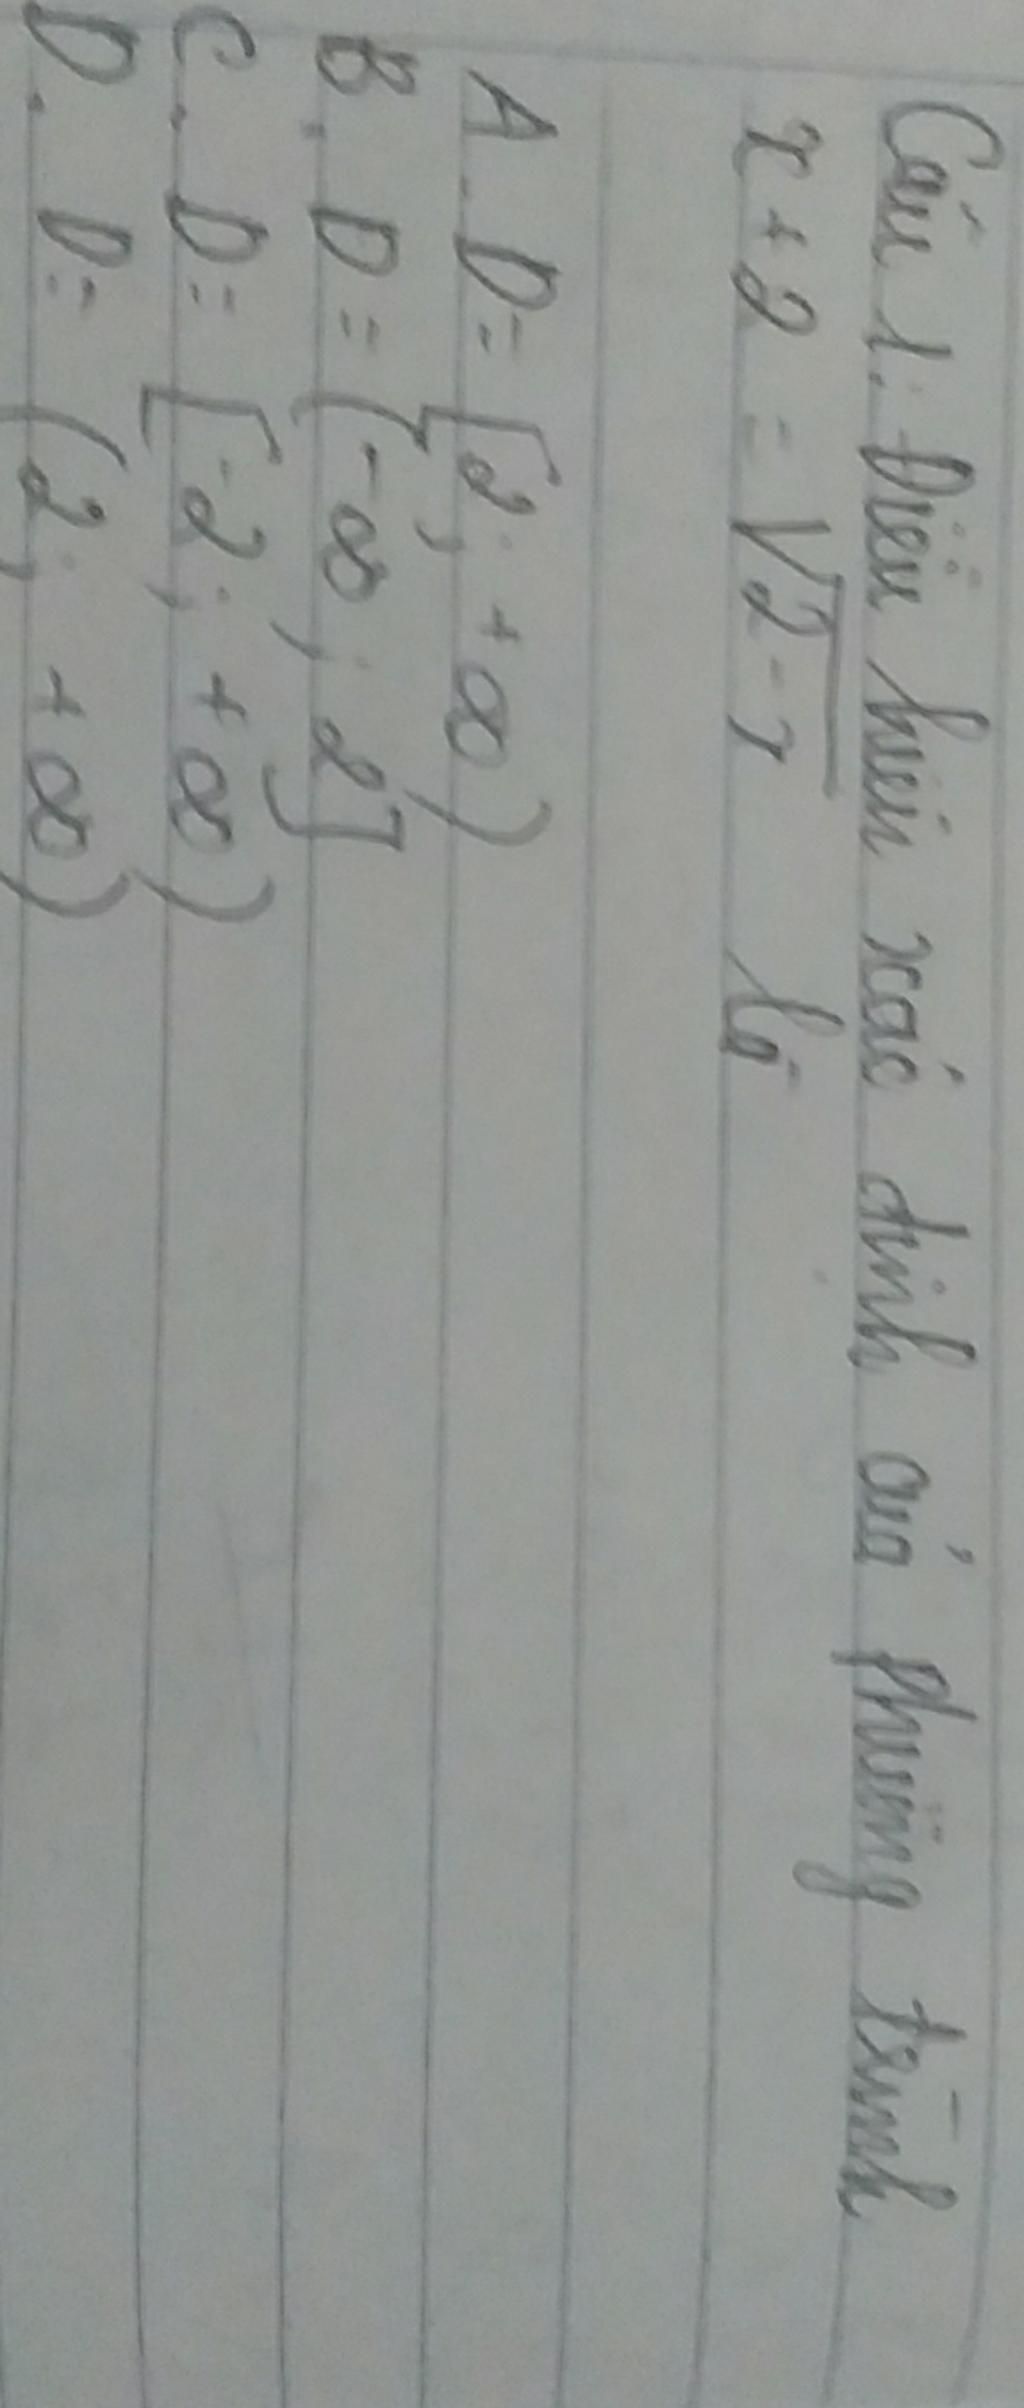 Câu 1: Điều kiện xác định của phương trình
x + 2 = √2 - x là
A. D = [2; +∞)
B. D = (-∞; 2]
C. D = [-2; +∞)
D. D = (2; +∞)